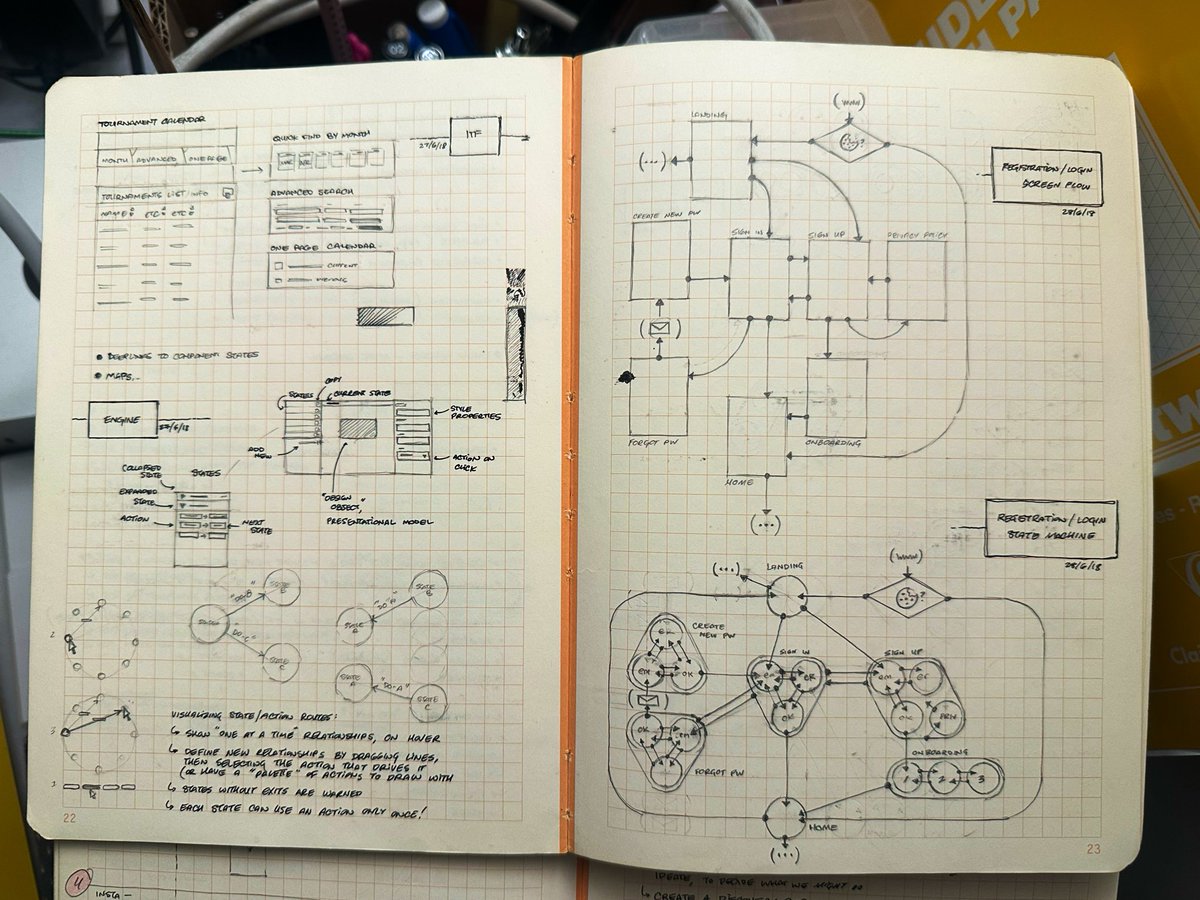 TOURNAMENT CALENDAR
MONTH
ADVANCED
ONE PAGE
TOURNAMENTS LIST INFO
NAME
ETC
ETC
QUICK FIND BY MONTH
ADVANCED SEARCH
ONE PAGE CALENDAR
CURRENT
ITF
27/6/18
DEEPLINKS TO COMPONENT STATES
MAPS...
ENGINE
27/6/18
STATES
COPY
CURRENT STATE
STYLE
PROPERTIES
ACTION ON
CLICK
ADD
NEW
"DESIGN
OBJECT,"
PRESENTATIONAL MODEL
COLLAPSED
STATE
STATES
EXPANDED
STATE
ACTION
NEXT
STATE
"DO-B"
STATE
B
"DO-C"
STATE
C
STATE
B
"DO-A"
STATE
A
STATE
A
"DO-A"
STATE
C
2
3
3
VISUALIZING STATE/ACTION ROUTES:
↳ SHOW "ONE AT A TIME" RELATIONSHIPS, ON HOVER
↳ DEFINE NEW RELATIONSHIPS BY DRAGGING LINES,
THEN SELECTING THE ACTION THAT DRIVES IT
(OR HAVE A "PALETTE" OF ACTIONS TO DRAW WITH
↳ STATES WITHOUT EXITS ARE WARNED
↳ EACH STATE CAN USE AN ACTION ONLY ONCE!
22
(WWW)
?
LANDING
(...)
REGISTRATION/LOGIN
SCREEN FLOW
28/6/18
CREATE NEW PW
SIGN IN
SIGN UP
PRIVACY POLICY
FORGOT PW
ONBOARDING
HOME
(...)
REGISTRATION/LOGIN
STATE MACHINE
28/6/18
(WWW)
?
(...)
LANDING
CREATE
NEW PW
ER
EM
OK
SIGN IN
EM
ER
OK
SIGN UP
EM
ER
OK
OK
EM
FORGOT PW
ONBOARDING
1
2
3
HOME
(...)
23
4
INSTA-
IDEATE, TO DECIDE WHAT WE MIGHT DO